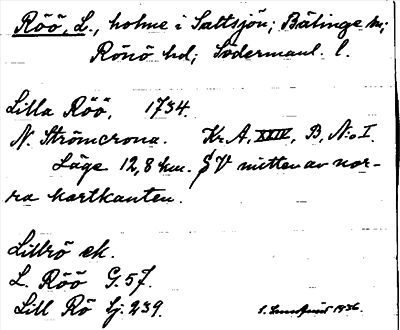 Röö, L., holme i Saltsjön; Bälinge sn;
Rönö hd; Södermanl. l.
Lilla Röö, 1734.
N. Strömcrona. Kr. A, XXIV, B, N:o I.
Läge 12,8 km. SV mitten av nor-
ra kartkanten.
Lillrö ek.
L. Röö G. 57.
Lill Rö Sj. 239.
1936.